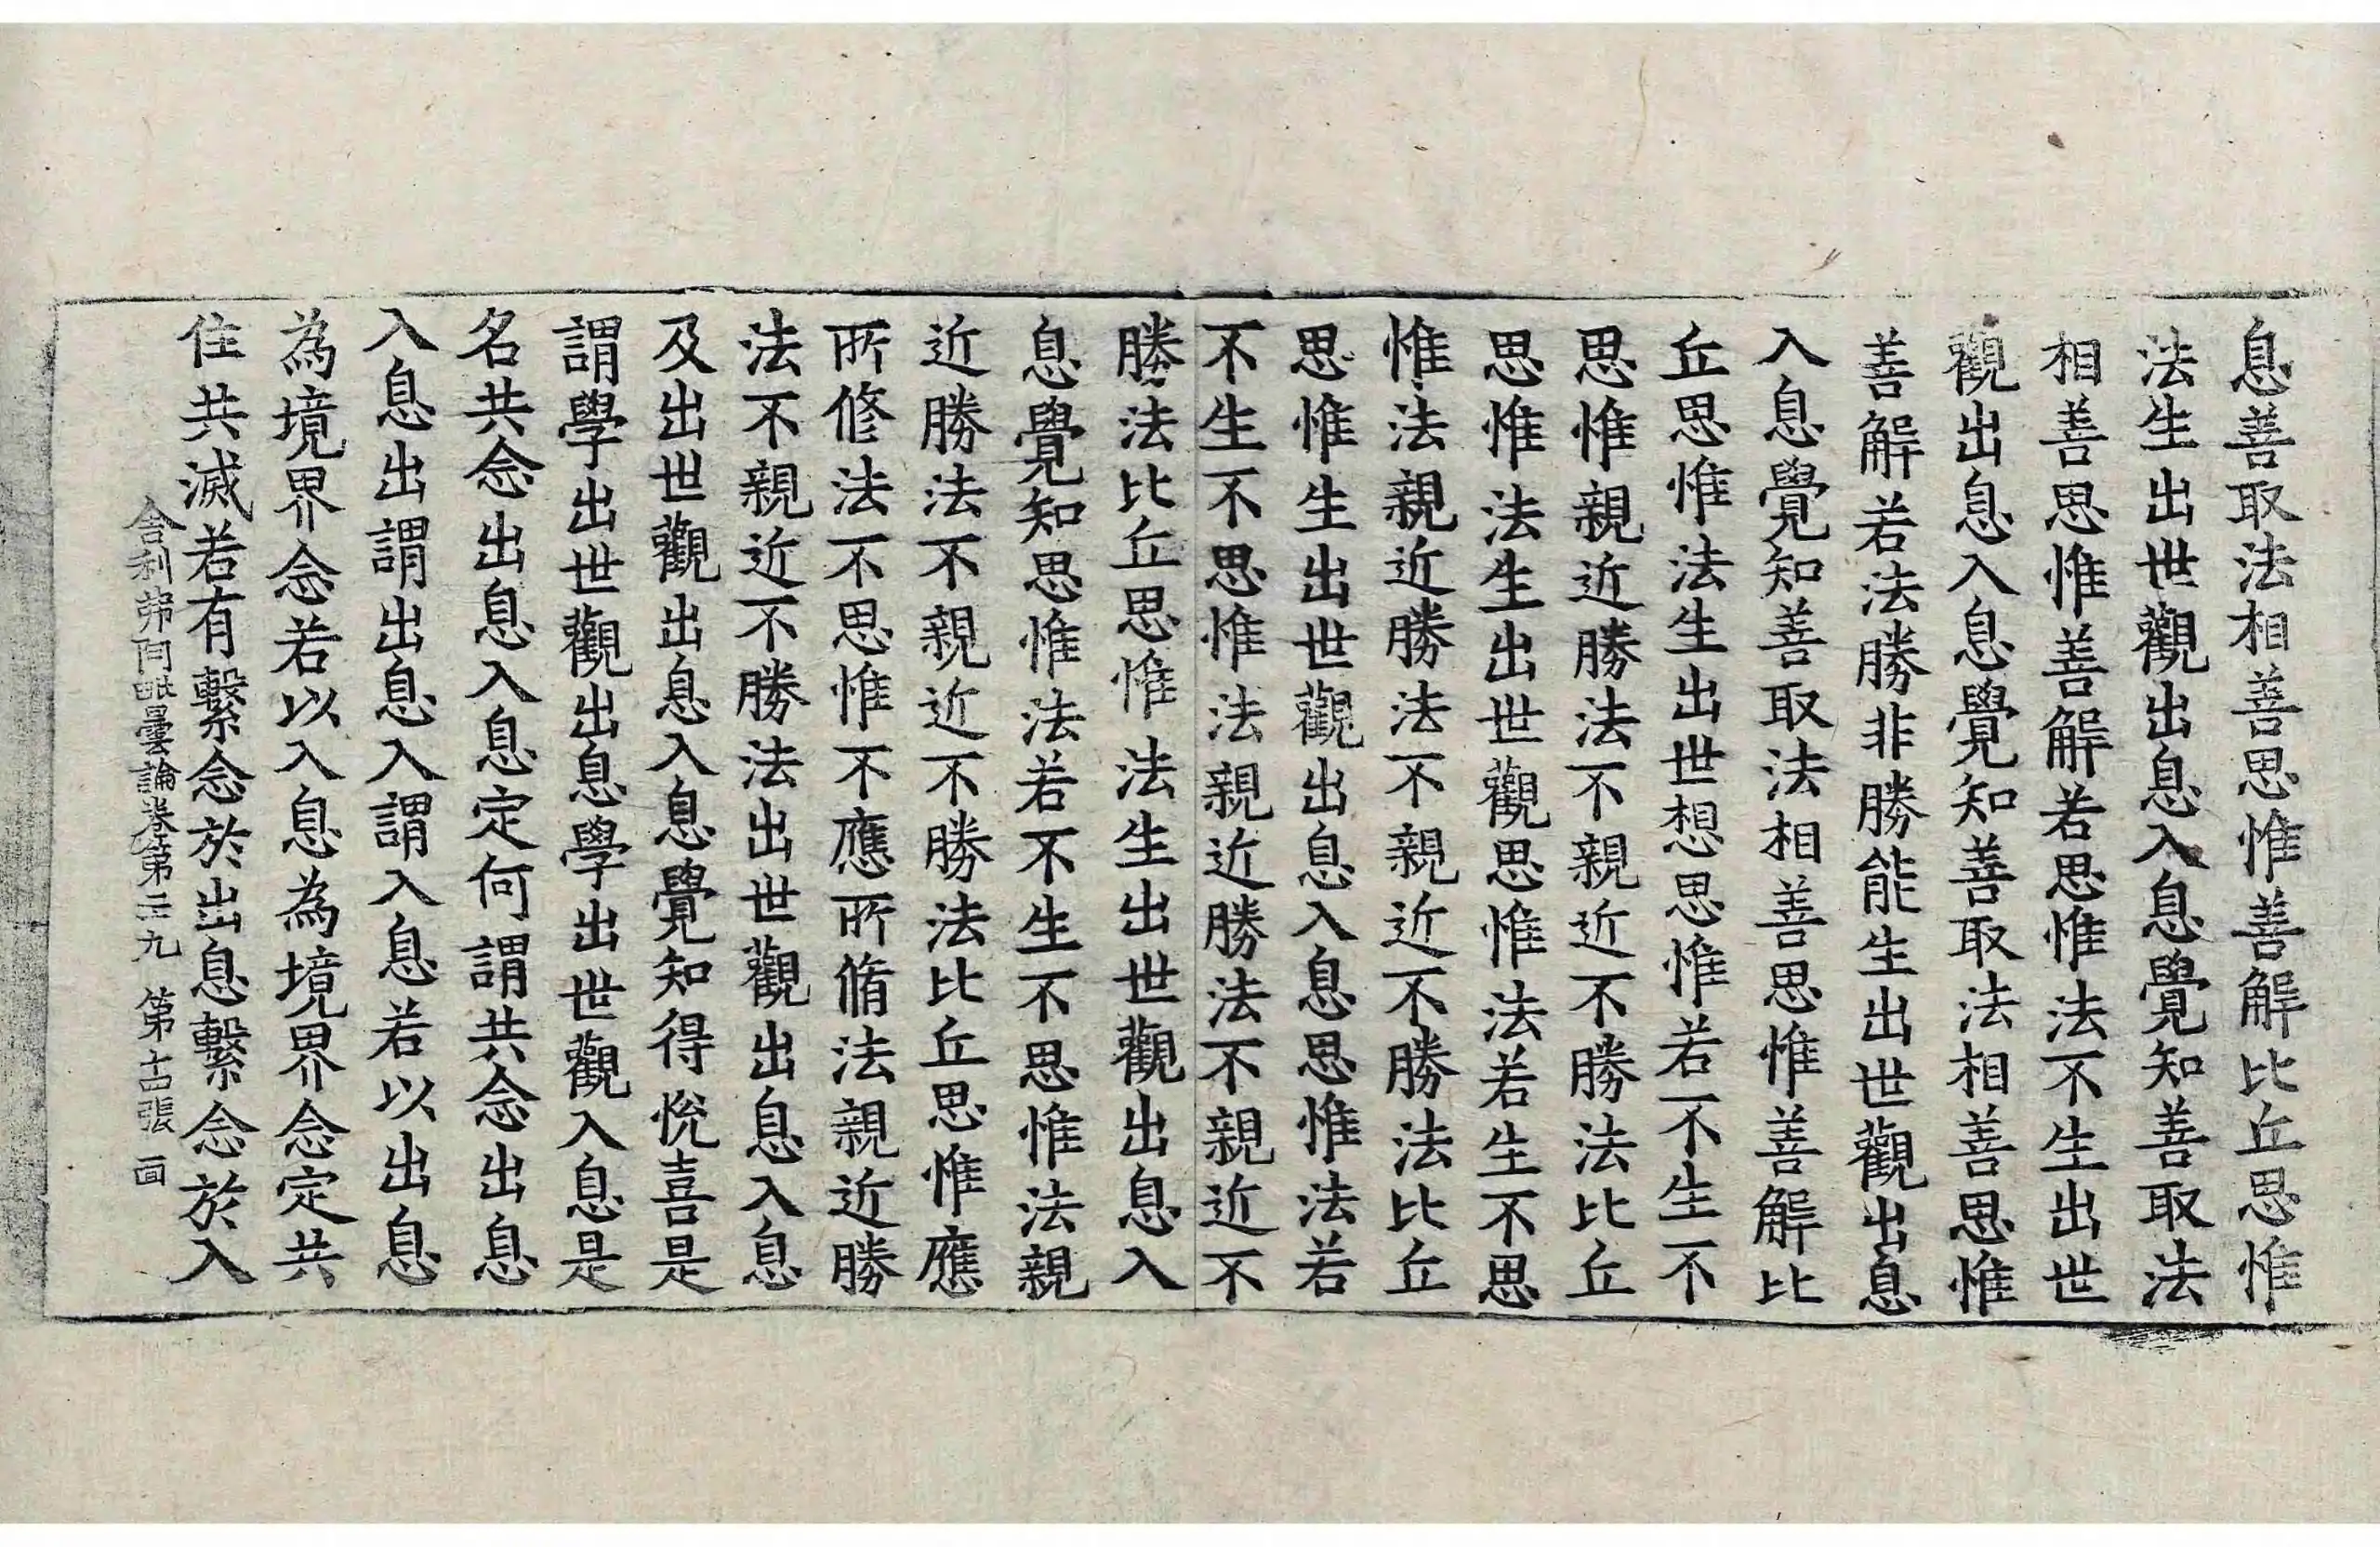 息善取法相善思惟善解比丘思惟
法生出世觀出息入息覺知善取法
相善思惟善解若思惟法不生出世
觀出息入息覺知善取法相善思惟
善解若法勝非勝能生出世觀出息
入息覺知善取法相善思惟善解比
丘思惟法生出世想思惟若不生不
思惟親近勝法不親近不勝法比丘
思惟法生出世觀思惟法若生不思
惟法親近勝法不親近不勝法比丘
思惟生出世觀出息入息思惟法若
不生不思惟法親近勝法不親近不
勝法比丘思惟法生出世觀出息入
息覺知思惟法若不生不思惟法親
近勝法不親近不勝法比丘思惟應
所修法不思惟不應所脩法親近勝
法不親近不勝法出世觀出息入息
及出世觀出息入息覺知得悅喜是
謂學出世觀出息學出世觀入息是
名共念出息入息定何謂共念出息
入息出謂出息入謂入息若以出息
為境界念若以入息為境界念定共
住共滅若有繫念於出息繫念於入
舍利弗阿毗曇論卷第二九 第十四張 𦉭